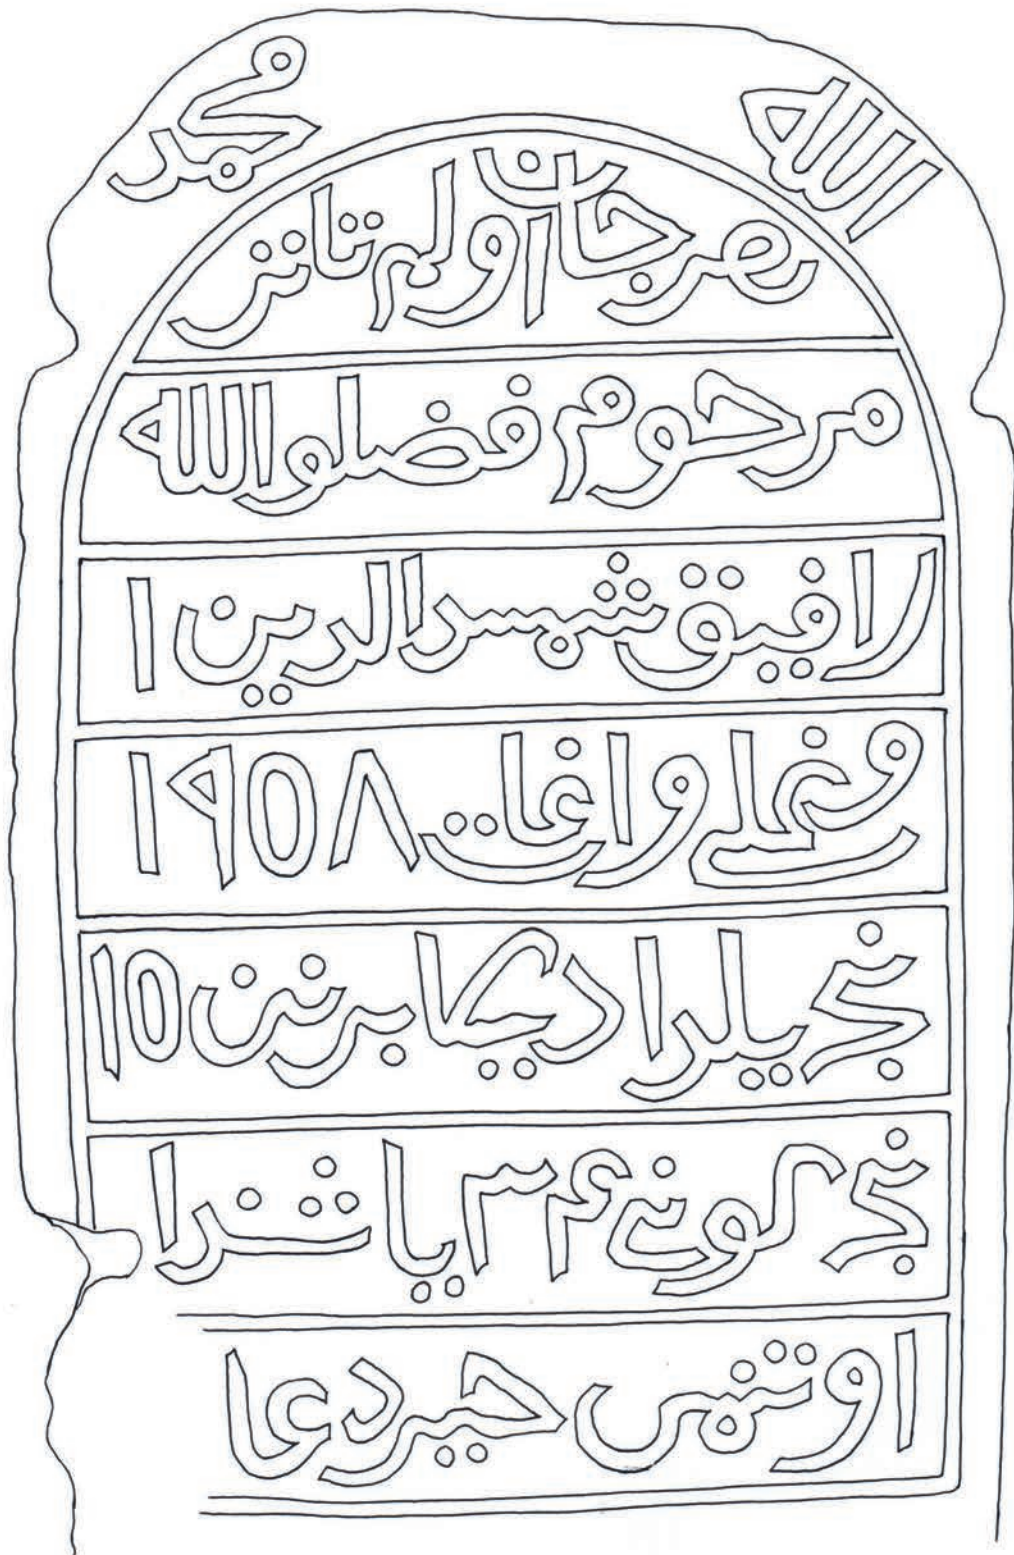 الله محمد
هر جان اولم تاتر
مرحوم فضلو الله
رافيق شمس الدين ا
وغلي وافات ١٩٥٨
نج يلدا ديكابرنن ١٥
نج كوني ٣۴ ياشندا
اوتنمس حير دعا